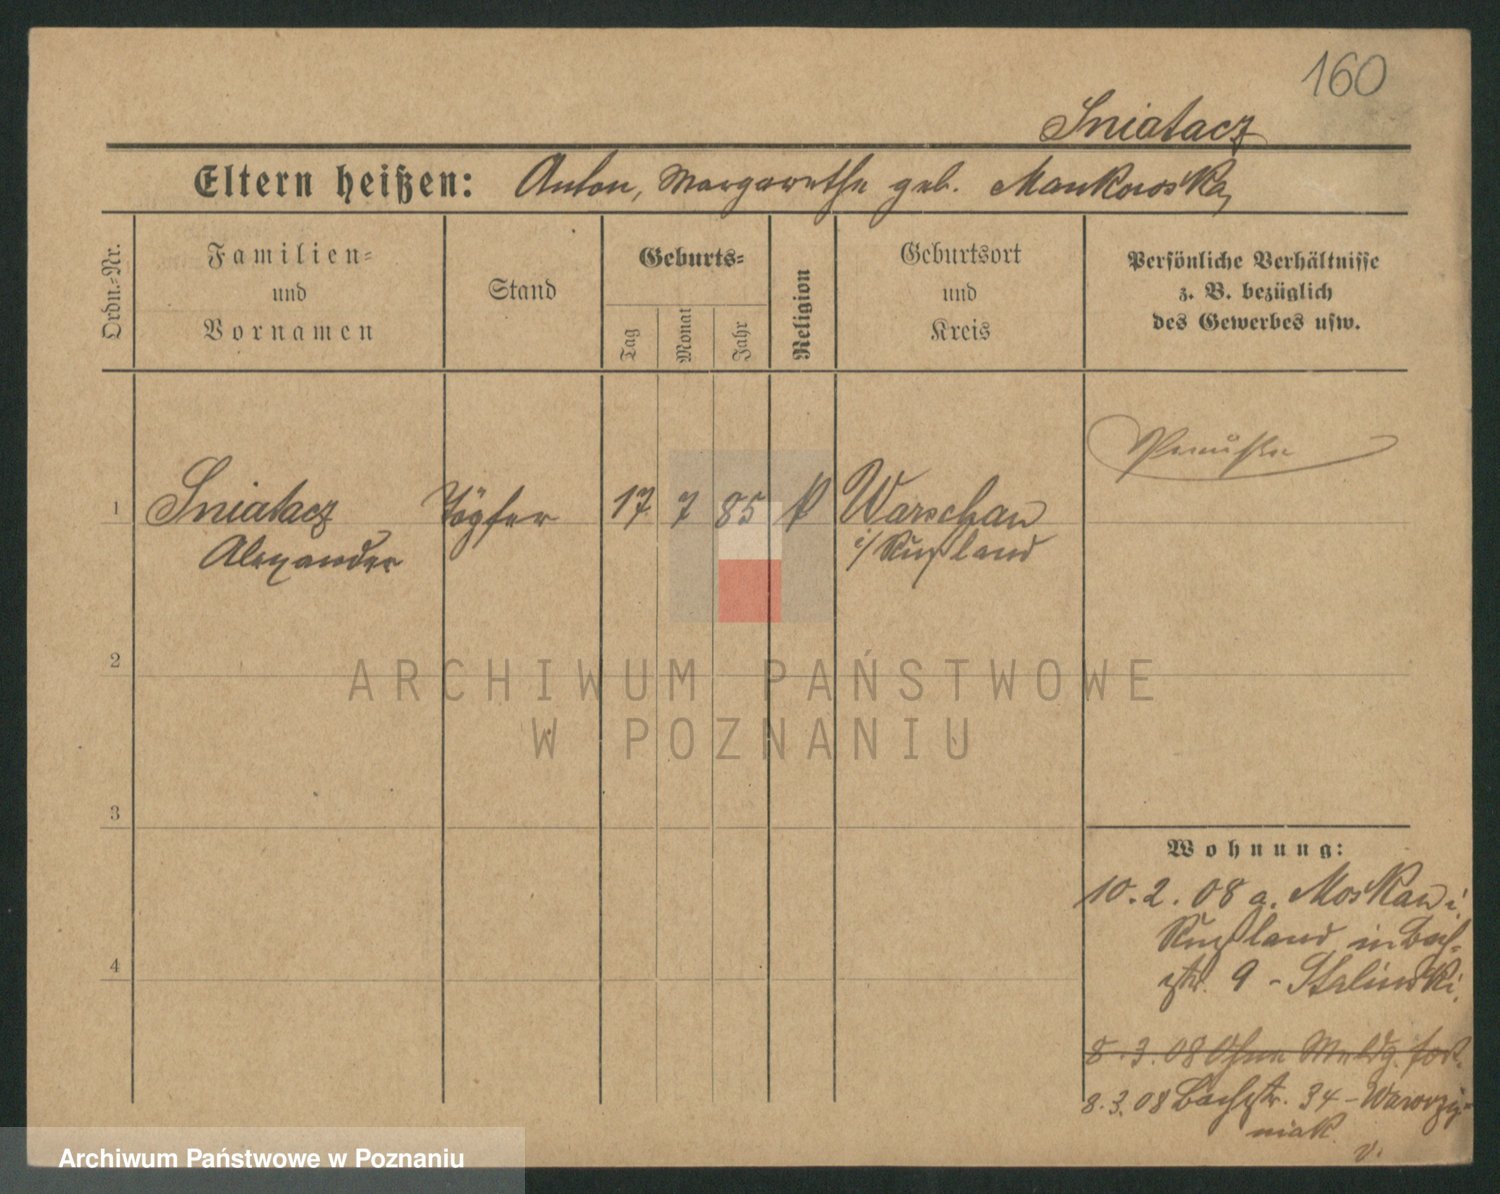 160
Sniatacz
Eltern heißen: Anton, Margarethe geb. Mankowska,
Ordn.-Nr.
Familien-
und
Vornamen
Stand
Geburts-
Tag
Monat
Jahr
Religion
Geburtsort
und
Kreis
Persönliche Verhältnisse
z. B. bezüglich
des Gewerbes usw.
1 Sniatacz Töpfer 17 7 85 k Warschau
Alexander i/Rußland
2
3
4
ARCHIWUM PAŃSTWOWE
W POZNANIU
Wohnung:
10.2.08 a. Moskau i.
Rußland in Bach-
str. 9 - Stalinski.
8.3.08 Ohne Meldg. fort.
8.3.08 Bachstr. 34 - Wawrzy-
niak
v.
Archiwum Państwowe w Poznaniu